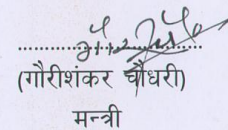 (गौरीशंकर चौधरी)
मन्त्री